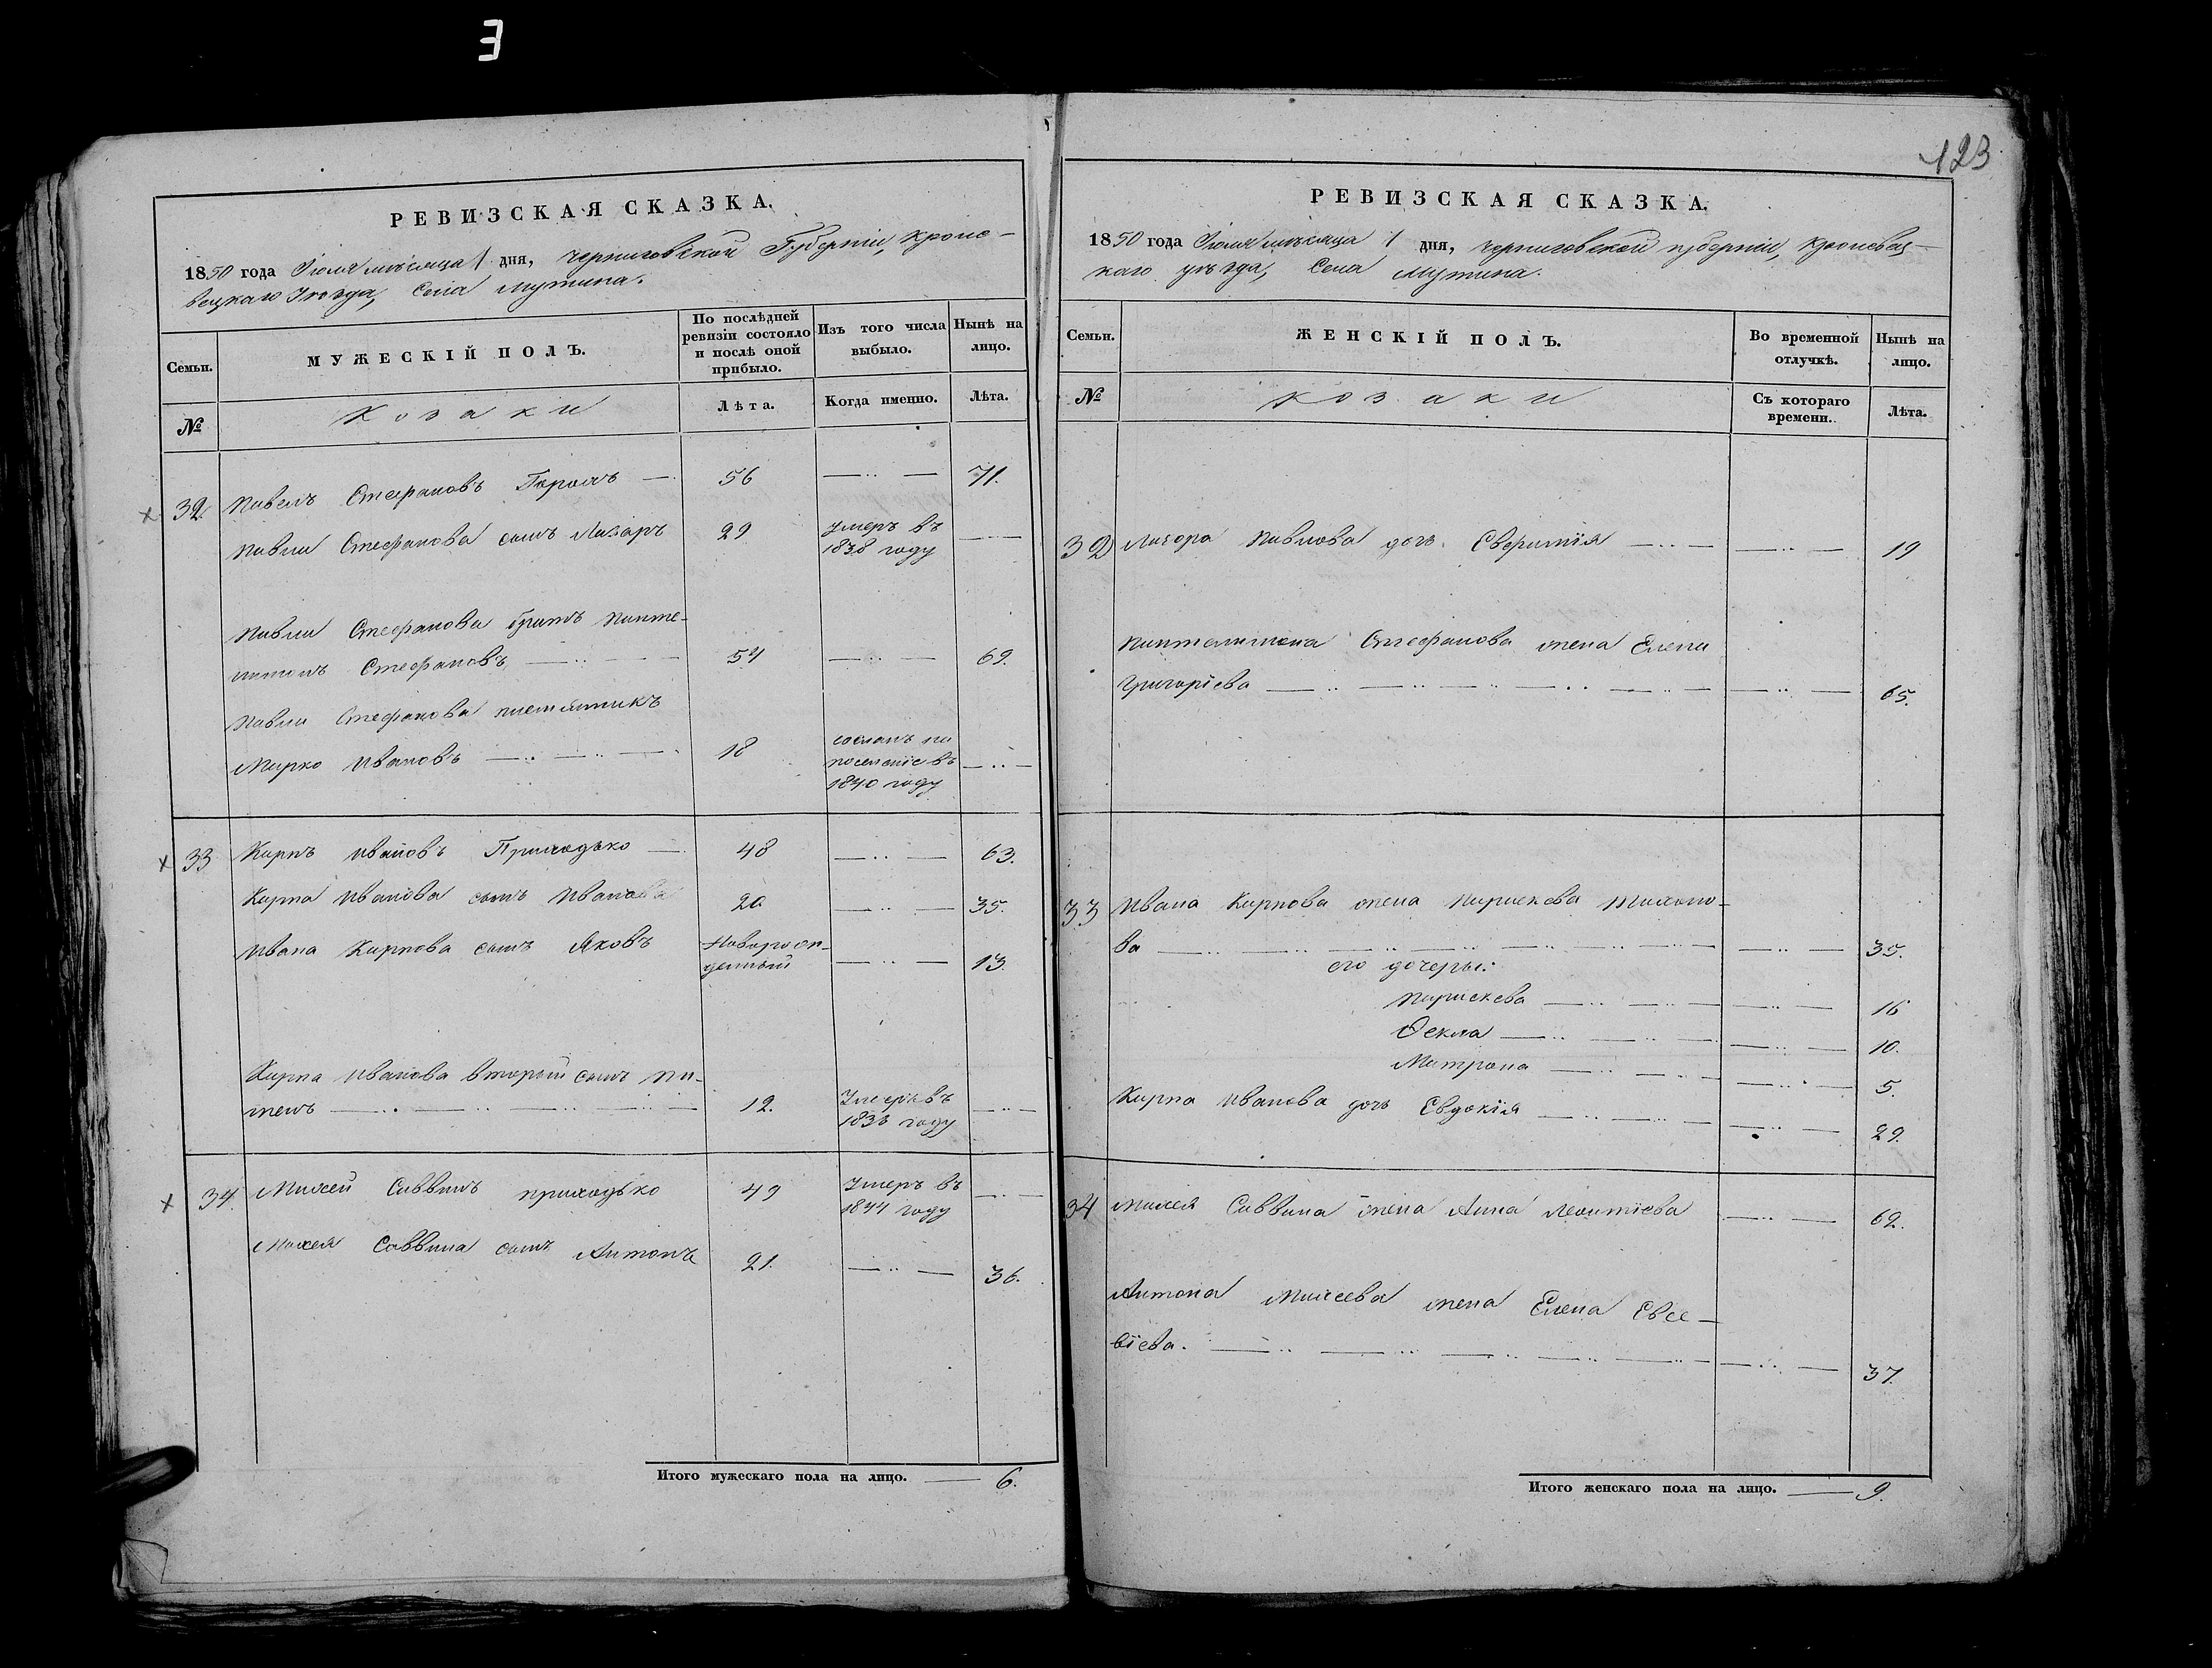 123
РЕВИЗСКАЯ СКАЗКА.
1850 года Іюля мѣсяца 1 дня, Черниговской Губерніи, Кроле-
вецкаго Уѣзда, Села Мутина.
Семьи. МУЖЕСКІЙ ПОЛЪ. По послѣдней ревизіи состояло и послѣ оной прибыло. Изъ того числа выбыло. Нынѣ на лицо.
№ Козаки Лѣта. Когда именно. Лѣта.
32. Павелъ Стефановъ — 56 — 71.
Павла Стефанова сынъ Лазарь 29 Умеръ въ
1838 году
Павла Стефанова братъ Панте-
лимонъ Стефановъ — 54 — 69.
Павла Стефанова племянникъ
Марко Ивановъ — 18 сосланъ на
поселеніе въ
1840 году
33 Карпъ Ивановъ Приходько — 48 — 63.
Карпа Иванова сынъ Иванъ 20 — 35.
Ивана Карпова сынъ Яковъ Новорож-
денный — 13.
Карпа Иванова вторый сынъ
12. Умеръ въ
году
34. Михей Саввинъ Приходько 49 Умеръ въ
1844 году
Михея Саввина сынъ Антонъ 21. — 36.
Итого мужескаго пола на лицо. — 6.
РЕВИЗСКАЯ СКАЗКА.
1850 года Іюля мѣсяца 1 дня, Черниговской губерніи, Кролевец-
каго уѣзда, Села Мутина.
Семьи. ЖЕНСКІЙ ПОЛЪ. Во временной отлучкѣ. Нынѣ на лицо.
№ Козаки Съ котораго времени. Лѣта.
32 Лазаря Павлова дочь Евфимія — 19
Пантелимона Стефанова жена Елена
Григоріева — 65.
33 Ивана Карпова жена Параскева Тихоно-
ва — 35.
его дочеры:
Параскева — 16
Ѳекла — 10.
Матрона — 5.
Карпа Иванова дочь Евдокія — 29.
34 Михея Саввина жена Анна Леонтіева — 62.
Антона Михеева жена Елена Евсе-
віева. — 37.
Итого женскаго пола на лицо. — 9.